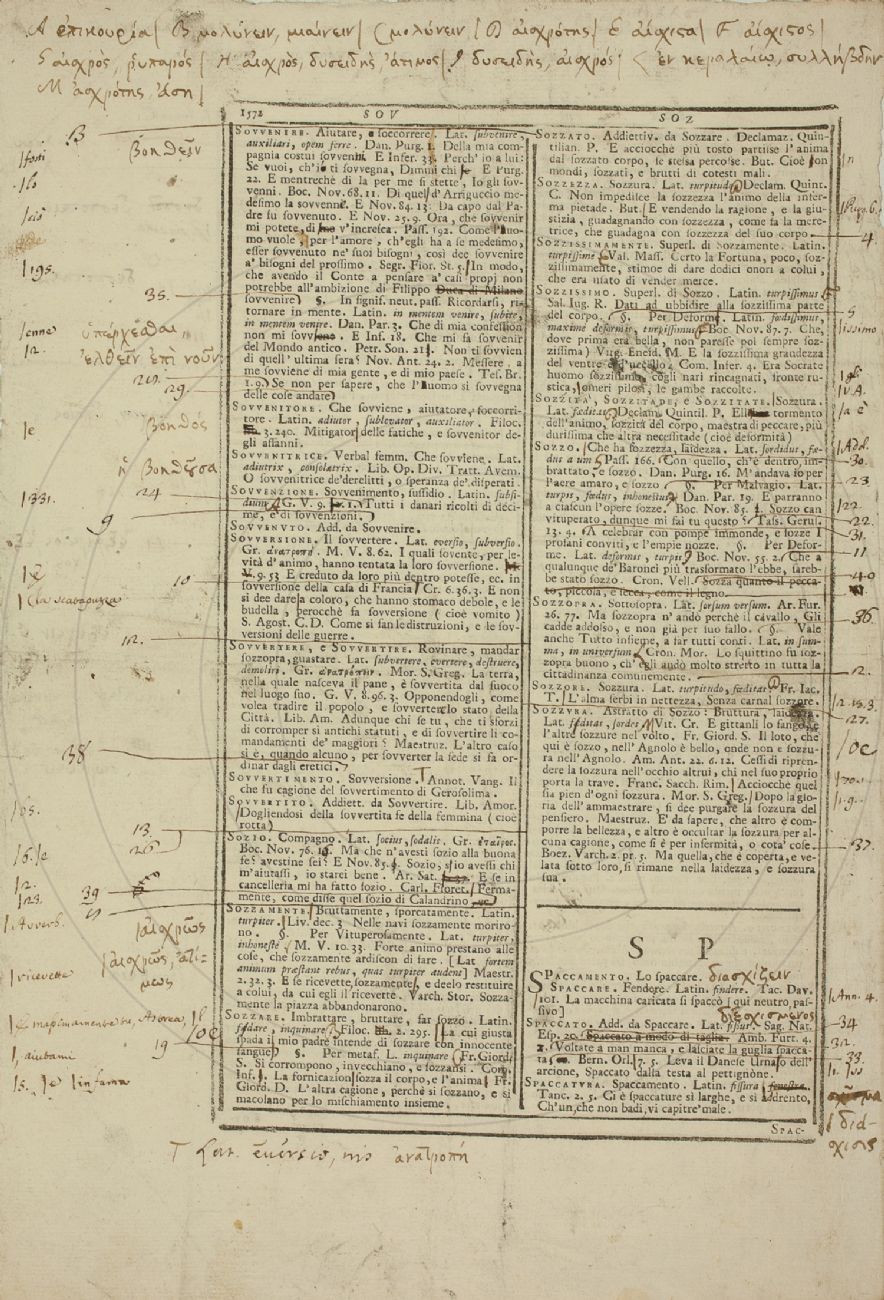 Α ἐπικουρία| Β μολύνειν, μιαίνειν| C μολύνειν | D αἰσχρότης| E αἴσχιστα| F αἴσχιστος|
G αἰσχρὸς, ῥυπαρός| H αἰσχρὸς, δυσειδὴς, ἄτιμος| I δυσειδὴς, αἰσχρός| ἐν κεφαλαίῳ, συλλήβδην
M αἰσχρότης, ἄση|
1572 SOV
SOVVENIRE. Aiutare, e soccorrere. Lat. subvenire,
auxiliari, opem ferre. Dan. Purg. 1. Della mia com-
pagnia costui sovvenni. E Infer. Perch' io a lui:
Se vuoi, ch'io ti sovvegna, Dimmi chi E Purg.
22. E mentrechè di la per me si stette, Io gli sov-
venni. Boc. Nov. 68. 11. Di quel d'Arriguccio me-
desimo la sovvenne. E Nov. 84. 13. Da capo dal Pa-
dre fu sovvenuto. E Nov. 25. 9. Ora, che sovvenir
mi potete, di v'incresca. Pass. 192. Come l'uo-
mo vuole, per l'amore, ch'egli ha a se medesimo,
esser sovvenuto ne' suoi bisogni, così dee sovvenire
a' bisogni del prossimo. Segr. Fior. St. 5. In modo,
che avendo il Conte a pensare a' casi propj non
potrebbe all'ambizione di Filippo Duca di Milano
sovvenire §. In signific. neut. pass. Ricordarsi, ri-
tornare in mente. Latin. in mentem venire, subire,
in mentem venire. Dan. Par. 3. Che di mia confession
non mi sovvenne. E Inf. 18. Che mi fa sovvenir
del Mondo antico. Petr. Son. 21. Non ti sovvien
di quell'ultima sera? Nov. Ant. 24. 2. Messere, a
me sovviene di mia gente, e di mio paese. Tes. Br.
1. 9. Se non per sapere, che l'uomo si sovvegna
delle cose andare
SOVVENITORE. Che sovviene, aiutatore, soccorri-
tore. Latin. adiutor, sublevator, auxiliator. Filoc.
3. 240. Mitigator delle fatiche, e sovvenitor de-
gli affanni.
SOVVENITRICE. Verbal femm. Che sovviene. Lat.
adiutrix, consolatrix. Lib. Op. Div. Tratt. Avem.
O sovvenitrice de' derelitti, o speranza de' disperati.
SOVVENZIONE. Sovvenimento, sussidio. Latin. subsi-
dium G. V. 9. Tutti i danari ricolti di deci-
me, e di sovvenzioni.
SOVVENUTO. Add. da Sovvenire.
SOVVERSIONE. Il sovvertere. Lat. eversio, subversio.
Gr. ἀνατροπή. M. V. 8. 62. I quali sovente, per le-
vità d'animo, hanno tentata la loro sovversione.
V. 9. 53 E creduto da loro più dentro potesse, ec. in
sovversione della casa di Francia Cr. 6. 36. 3. E non
si dee dare a coloro, che hanno stomaco debole, e le
budella, perocchè fa sovversione (cioè vomito)
S. Agost. C. D. Come si fan le distruzioni, e le sov-
versioni delle guerre.
SOVVERTERE, e SOVVERTIRE. Rovinare, mandar
sozzopra, guastare. Lat. subvertere, evertere, destruere,
demoliri. Gr. ἀνατρέπειν. Mor. S. Greg. La terra,
nella quale nasceva il pane, è sovvertita dal fuoco
nel luogo suo. G. V. 8. 96. 3. Opponendogli, come
volea tradire il popolo, e sovvertere lo stato della
Città. Lib. Am. Adunque chi se tu, che ti sforzi
di corromper sì antichi statuti, e di sovvertire li co-
mandamenti de' maggiori? Maestruz. L'altro caso
si è, quando alcuno, per sovverter la fede si fa or-
dinar dagli eretici.
SOVVERTIMENTO. Sovversione. Annot. Vang. Il
che fu cagione del sovvertimento di Gerosolima.
SOVVERTITO. Addiett. da Sovvertire. Lib. Amor.
Dogliendosi della sovvertita fe della femmina (cioè
rotta)
SOZIO. Compagno. Lat. socius, sodalis. Gr. ἑταῖρος.
Boc. Nov. 76. Ma che n'avesti sozio alla buona
fe? avestine sei? E Nov. 85. Sozio, s'io avessi chi
m'aiutassi, io starei bene. Ar. Sat. E se in
cancelleria mi ha fatto sozio. Carl. Fioret. Ferma-
mente, come disse quel sozio di Calandrino
SOZZAMENTE. Bruttamente, sporcamente. Latin.
turpiter. Liv. dec. 3 Nelle navi sozzamente moriro-
no. §. Per Vituperosamente. Lat. turpiter,
inhoneste M. V. 10. 33. Forte animo prestano alle
cose, che sozzamente ardiscon di fare. [Lat fortem
animum prestant rebus, quas turpiter audent] Maestr.
2. 32. 3. E se ricevette sozzamente, e deelo restituire
a colui, da cui egli il ricevette. Varch. Stor. Sozza-
mente la piazza abbandonarono.
SOZZARE. Imbrattare, bruttare, far sozzo. Latin.
fœdare, inquinare. Filoc. 2. 295. La cui giusta
spada il mio padre intende di sozzare con innocente
sangue §. Per metaf. L. inquinare Fr. Giord.
S. Si corrompono, invecchiano, e sozzansi. Com.
Inf. La fornicazion sozza il corpo, e l'anima Fr.
Giord. D. L'altra cagione, perchè si sozzano, e si
macolano per lo mischiamento insieme.
SOZ
SOZZATO. Addiettiv. da Sozzare. Declamaz. Quin-
tilian. P. E acciocchè più tosto partisse l'anima
dal sozzato corpo, se stessa percosse. But. Cioè on
mondi, sozzati, e brutti di cotesti mali.
SOZZEZZA. Sozzura. Lat. turpitudo Declam. Quint.
C. Non impedisce la sozzezza l'animo della infer-
ma pietade. But. E vendendo la ragione, e la giu-
stizia, guadagnando con sozzezza, come fa la mere-
trice, che guadagna con sozzezza del suo corpo
SOZZISSIMAMENTE. Superl. di Sozzamente. Latin.
turpissime Val. Mass. Certo la Fortuna, poco, soz-
zissimamente, stimoe di dare dodici onori a colui,
che era usato di vender merce.
SOZZISSIMO. Superl. di Sozzo. Latin. turpissimus
Sal. Iug. R. Dati ad ubbidire alla sozzissima parte
del corpo. §. Per Deforme. Latin. fœdissimus,
maxime deformis, turpissimus Boc. Nov. 87. 7. Che,
dove prima era bella, non paresse poi sempre soz-
zissima Virg. Eneid. M. E la sozzissima grandezza
del ventre d'uccello. Com. Infer. 4. Era Socrate
huomo sozzissimo, cogli nari rincagnati, fronte ru-
stica, omeri pilosi, le gambe raccolte.
SOZZITÀ, SOZZITADE, e SOZZITATE. Sozzura.
Lat. fœditas Declam. Quintil. P. tormento
dell'animo, sozzità del corpo, maestra di peccare, più
durissima che altra necessitade (cioè deformità)
SOZZO. Che ha sozzezza, laidezza. Lat. sordidus, fœ-
dus Pass. 166. Con quello, ch'è dentro, im-
brattato, e sozzo. Dan. Purg. 16. M'andava io per
l'aere amaro, e sozzo §. Per Malvagio. Lat.
turpis, fœdus, inhonestus Dan. Par. 19. E parranno
a ciascun l'opere sozze. Boc. Nov. 85. Sozzo can
vituperato, dunque mi fai tu questo? Tass. Gerus.
13. 4. A celebrar con pompe immonde, e sozze I
profani conviti, e l'empie nozze. §. Per Defor-
me. Lat. deformis, turpis Boc. Nov. 55. 2. Che a
qualunque de' Baronci più trasformato l'ebbe, sareb-
be stato sozzo. Cron. Vell. Sozza quanto il pecca-
to, piccola, e secca, come il legno.
SOZZOPRA. Sottosopra. Lat. sorsum versum. Ar. Fur.
26. 77. Ma sozzopra n' andò perchè il cavallo, Gli
cadde addosso, e non già per suo fallo. §. Vale
anche Tutto insieme, a far tutti conti. Lat. in sum-
ma, in universum Cron. Mor. Lo squittino fu soz-
zopra buono, ch' egli andò molto stretto in tutta la
cittadinanza comunemente.
SOZZORE. Sozzura. Lat. turpitudo, fœditas Fr. Iac.
T. L'alma serbi in nettezza, Senza carnal sozzore.
SOZZURA. Astratto di Sozzo: Bruttura, laidezza.
Lat. fœditas, sordes Vit. Cr. E gittanli lo fango, e
l'altre sozzure nel volto. Fr. Giord. S. Il loto, che
qui è sozzo, nell'Agnolo è bello, onde non è sozzu-
ra nell'Agnolo. Am. Ant. 22. 6. 12. Cessi di ripren-
dere la sozzura nell'occhio altrui, chi nel suo proprio
porta la trave. Franc. Sacch. Rim. Acciocchè quel
sia pien d'ogni sozzura. Mor. S. Greg. Dopo la glo-
ria dell'ammaestrare, si dee purgare la sozzura del
pensiero. Maestruz. E' da sapere, che altro è com-
porre la bellezza, e altro è occultar la sozzura per al-
cuna cagione, come si è per infermità, o cota' cose.
Boez. Varch. 2. pr. 5. Ma quella, che è coperta, e ve-
lata sotto loro, si rimane nella laidezza, e sozzura
sua.
S P
SPACCAMENTO. Lo spaccare. διασχίζειν
SPACCARE. Fendere. Latin. findere. Tac. Dav.
101. La macchina caricata si spaccò [qui neutro, pas-
sivo]
SPACCATO. Add. da Spaccare. Lat. fissus. Sag. Nat.
Esp. 20. Spaccato a modo di taglia. Amb. Furt. 4.
2. Voltate a man manca, e lasciate la guglia spacca-
ta Bern. Orl. 7. 5. Leva il Danese Urnaso dell'
arcione, Spaccato dalla testa al pettignone.
SPACCATURA. Spaccamento. Latin. fissura, fenestra.
Tanc. 2. 5. Ci è spaccature sì larghe, e sì addrento,
Ch'un, che non badi, vi capitre' male.
SPAC-
13
βοηθεῖν
195.
35.
ὑπέρχεσθαι,
ἐλθεῖν ἐπὶ νοῦν
29
βοηθὸς
ἡ βοηθέουσα
24
1331.
9
10
la scatapuzza
12.
38
13.
26
39
Avverb.
αἰσχρῶς
αἰσχρῶς, ἀτί-
μως
ricevette
19
aiutami
infama
Purg. 6.
4.
5
issimo
30.
23
22
22.
31.
11
40
36.
12.
27.
37.
Ann. 4.
διεσχισμένος
34
32.
33.
διά-
σχισις
T Lat. eversio, nis ἀνατροπή